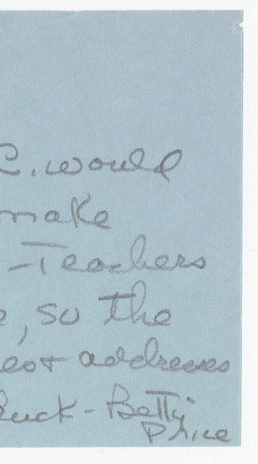 C. would
make
-Teachers
e, so the
es + addresses
Luck - Betty
Price